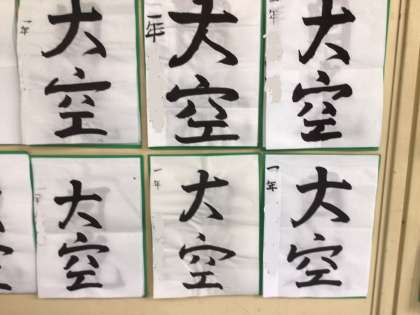 大空
一年
大空
一年
大空
一年
大空
一年
大空
一年
大空
一年